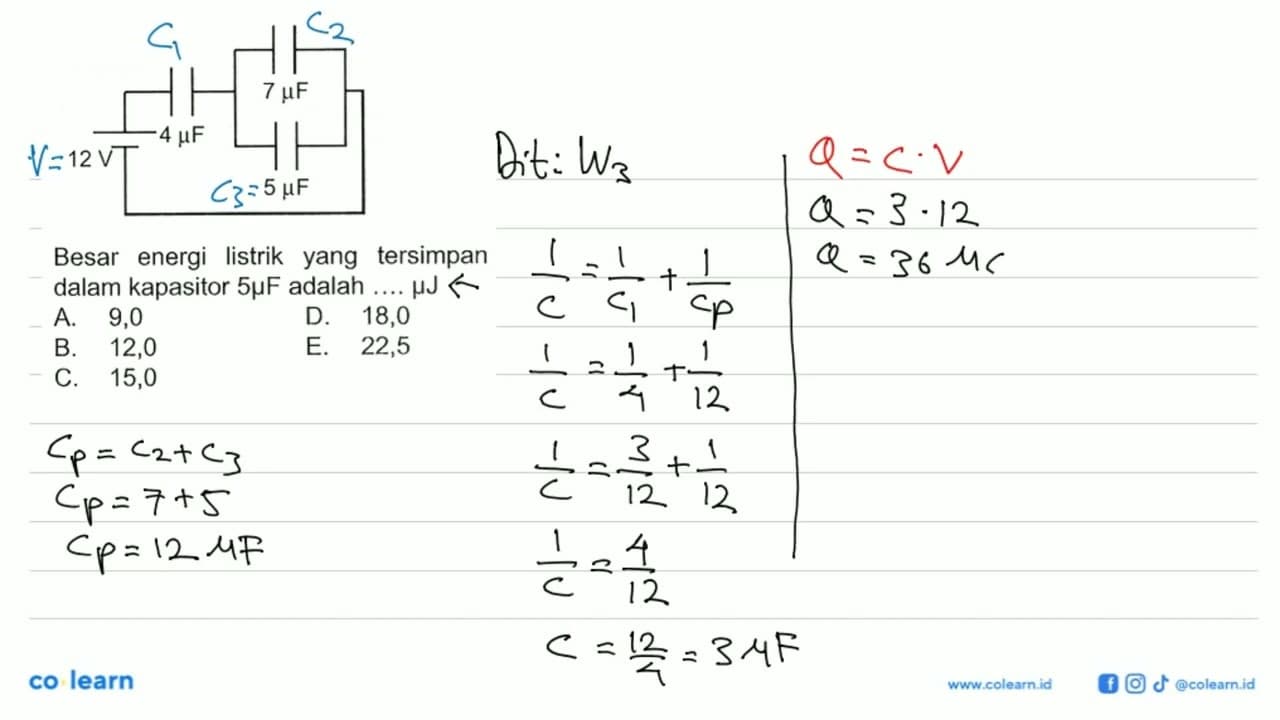 C1
C2
7 μF
4 μF
V = 12 V
C3 = 5 μF
Besar energi listrik yang tersimpan
dalam kapasitor 5μF adalah .... μJ ←
A. 9,0 D. 18,0
B. 12,0 E. 22,5
C. 15,0
Cp = C2 + C3
Cp = 7 + 5
Cp = 12 μF
Dit: W3
1/C = 1/C1 + 1/Cp
1/C = 1/4 + 1/12
1/C = 3/12 + 1/12
1/C = 4/12
C = 12/4 = 3 μF
Q = C . V
Q = 3 . 12
Q = 36 μC
co learn
www.colearn.id
@colearn.id